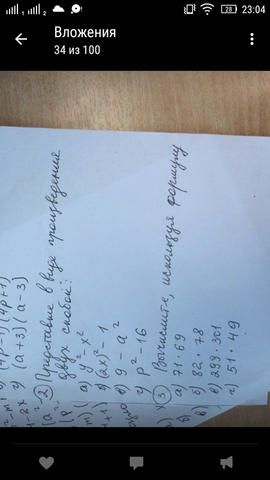 23:04
28
Вложения
34 из 100
(4p-1)(4p+1)
(a+3)(a-3)
② Представьте в виде произведения
двух скобок:
а) y² - x²
б) (2x)² - 1
в) 9 - a²
г) p² - 16
③ Вычислите, используя формулу
а) 71 · 69
б) 82 · 78
в) 299 · 301
г) 51 · 49